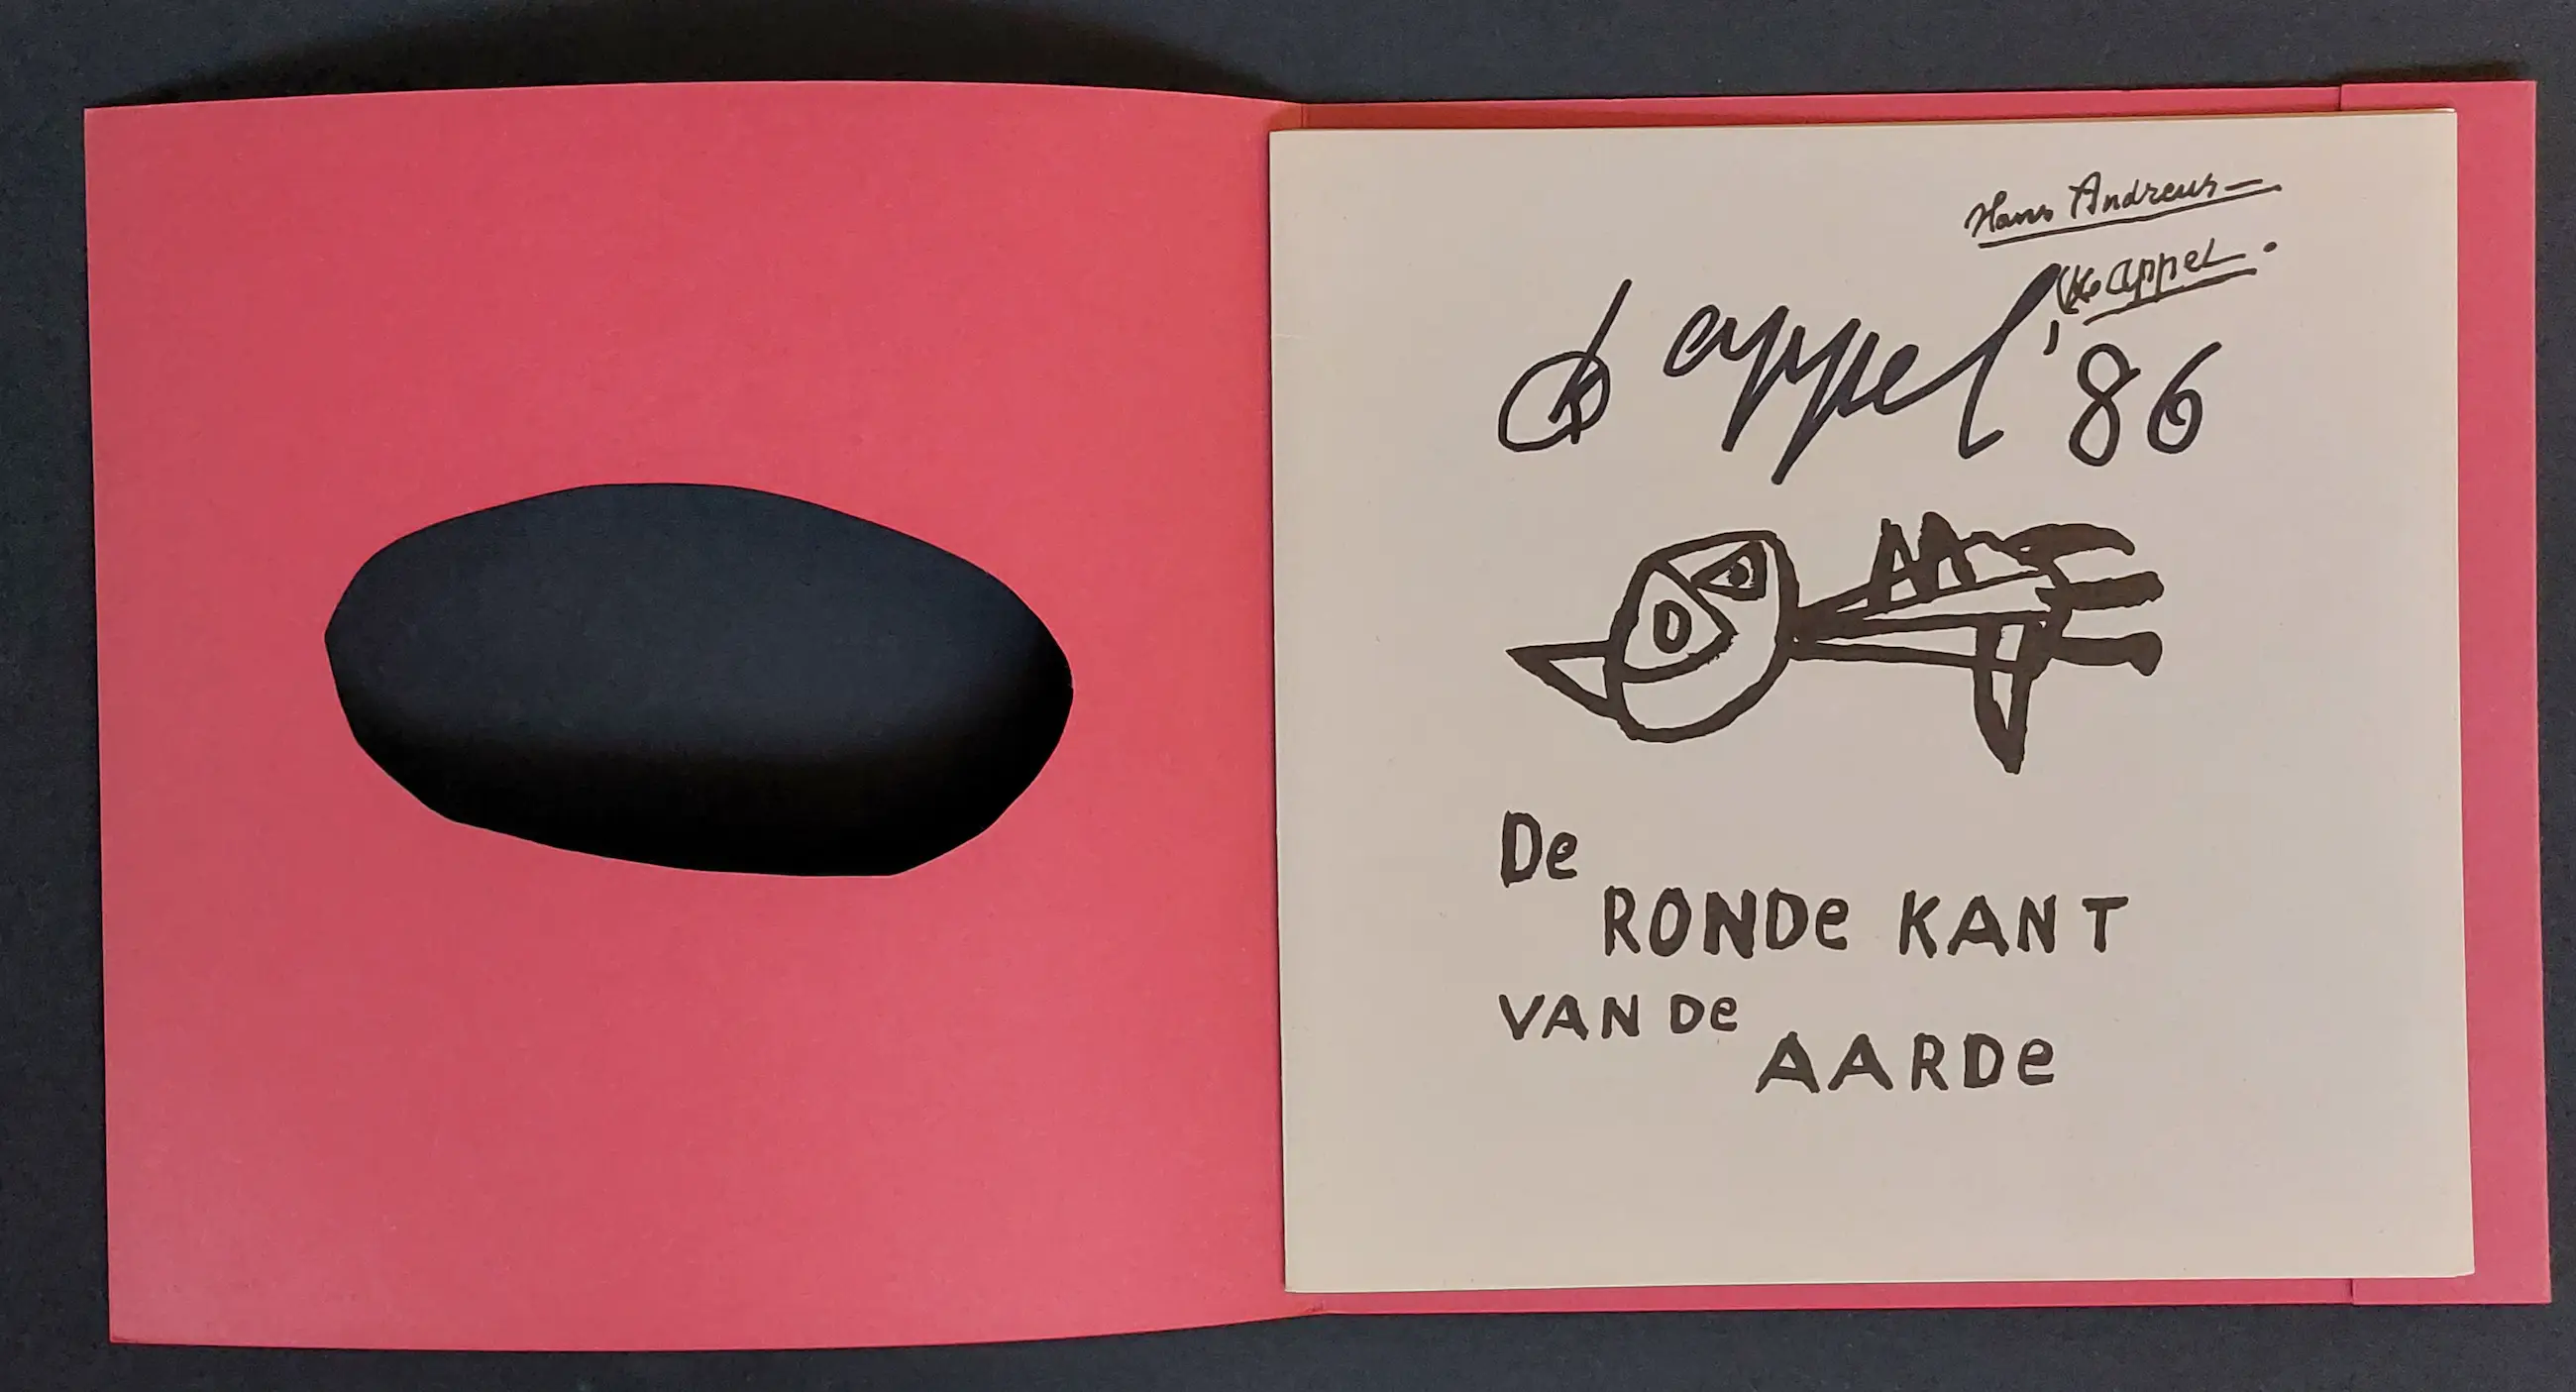 Hans Andreus
K. appel.
K appel '86
De
RONDe KANT
VAN De
AARDe